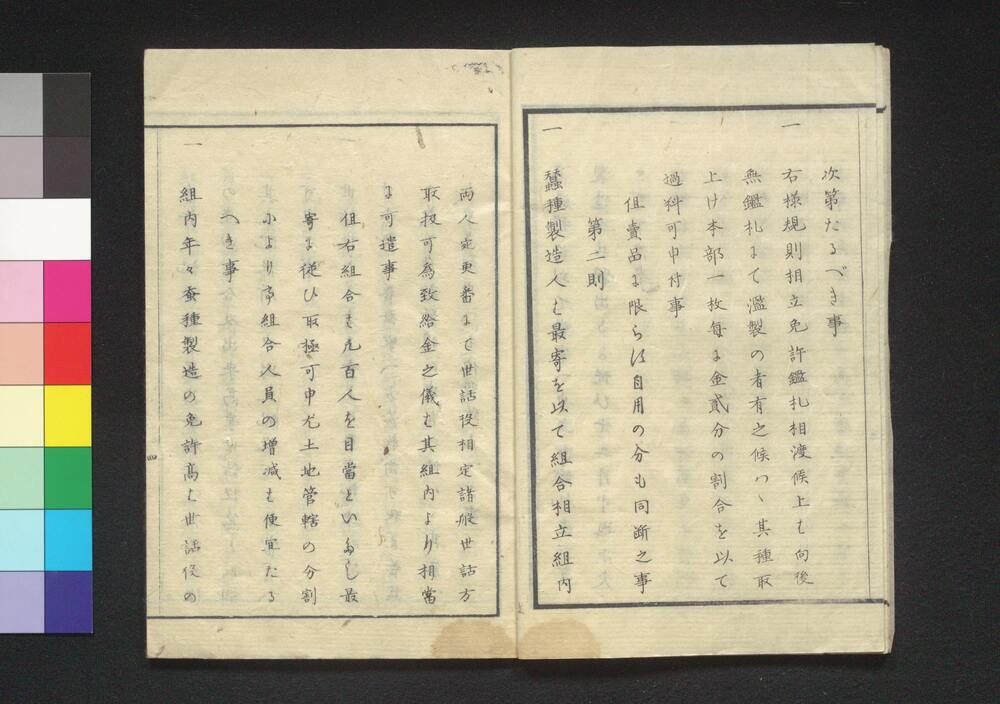 次第たるべき事
一
右様規則相立免許鑑札相渡候上も向後
無鑑札よて濫製の者有之候ハヽ其種取
上け本部一枚毎に金貳分の割合を以て
過料可申付事
但賣品に限らす自用の分も同断之事
第二則
一
蠶種製造人も最寄を以て組合相立組内
両人宛更番よて世話役相定諸般世話方
取扱可為致給金之儀も其組内より相當
に可遣事
但右組合も凡百人を目當といたし最
寄に従ひ取極可申尤土地管轄の分割
により亦組合人員の増減も便宜たる
へき事
一
組内年々蚕種製造の免許高も世話役の